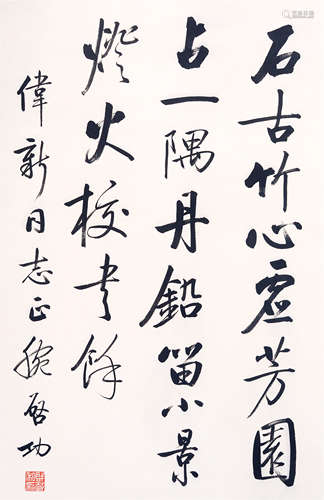 石古竹心虛芳園
占一隅丹鉛留小景
燈火校書餘
偉新同志正腕 啓功